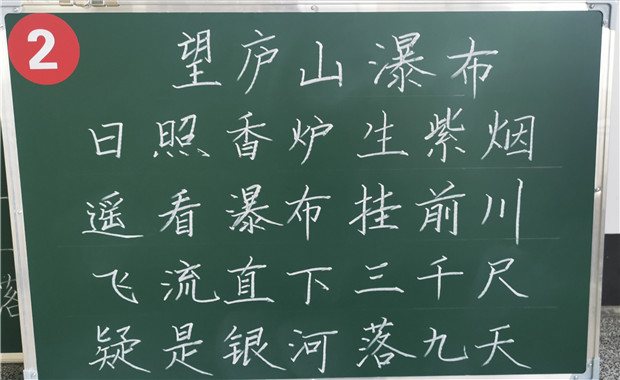 2
望庐山瀑布
日照香炉生紫烟
遥看瀑布挂前川
飞流直下三千尺
疑是银河落九天
落